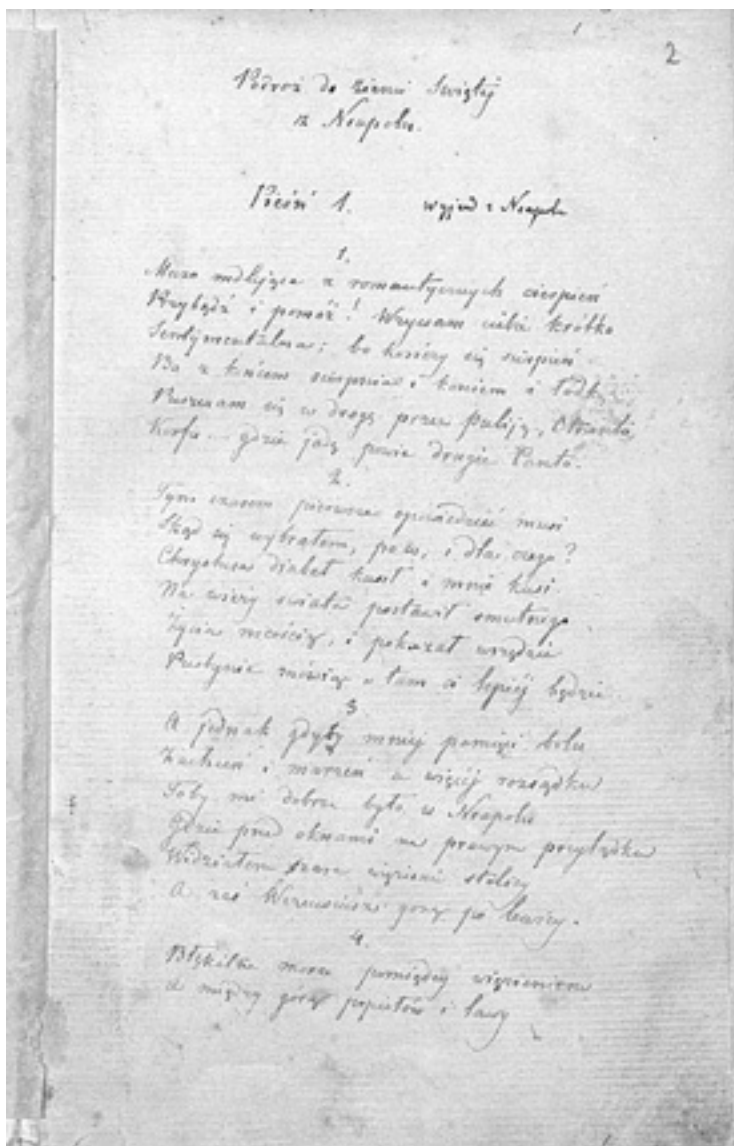 2
Podróż do ziemi Świętéj
z Neapolu.
Pieśń 1. wyjazd z Neapolu
1.
Muzo mdlejąca z romantycznych cierpień
Przybądź i pomóż! Wzywam ciebie krótko
Sentymentalna; bo kończy się sierpień
Ba z końcem sierpnia i koniem i łódką
Puszczam się w drogę przez Puliją, Otranto,
Korfu... gdzie jadę powie drugie Canto.
2.
Tym czasem pierwsze opowiedzieć musi
Skąd się wybrałem, po co, i dla czego?
Chrystusa diabeł kusił i mnie kusi
Na wieży świata postawił smutnego
Życia nicością, i pokazał wszędzie
Pustynie mówiąc "tam ci lepiéj będzie
3
A jednak gdyby mniéj pamięci bolu
Zachceń i marzeń a więcéj rozsądku
Toby mi dobrze było w Neapolu
Gdzie pred oknami na prawym przylądku
Widziałem szare więzienie stolicy
A zaś Wezuwiuszski gorę po lewicy.
4.
Błękitne morze pomiędzy więzieniem
A między górą popiołów i lawy